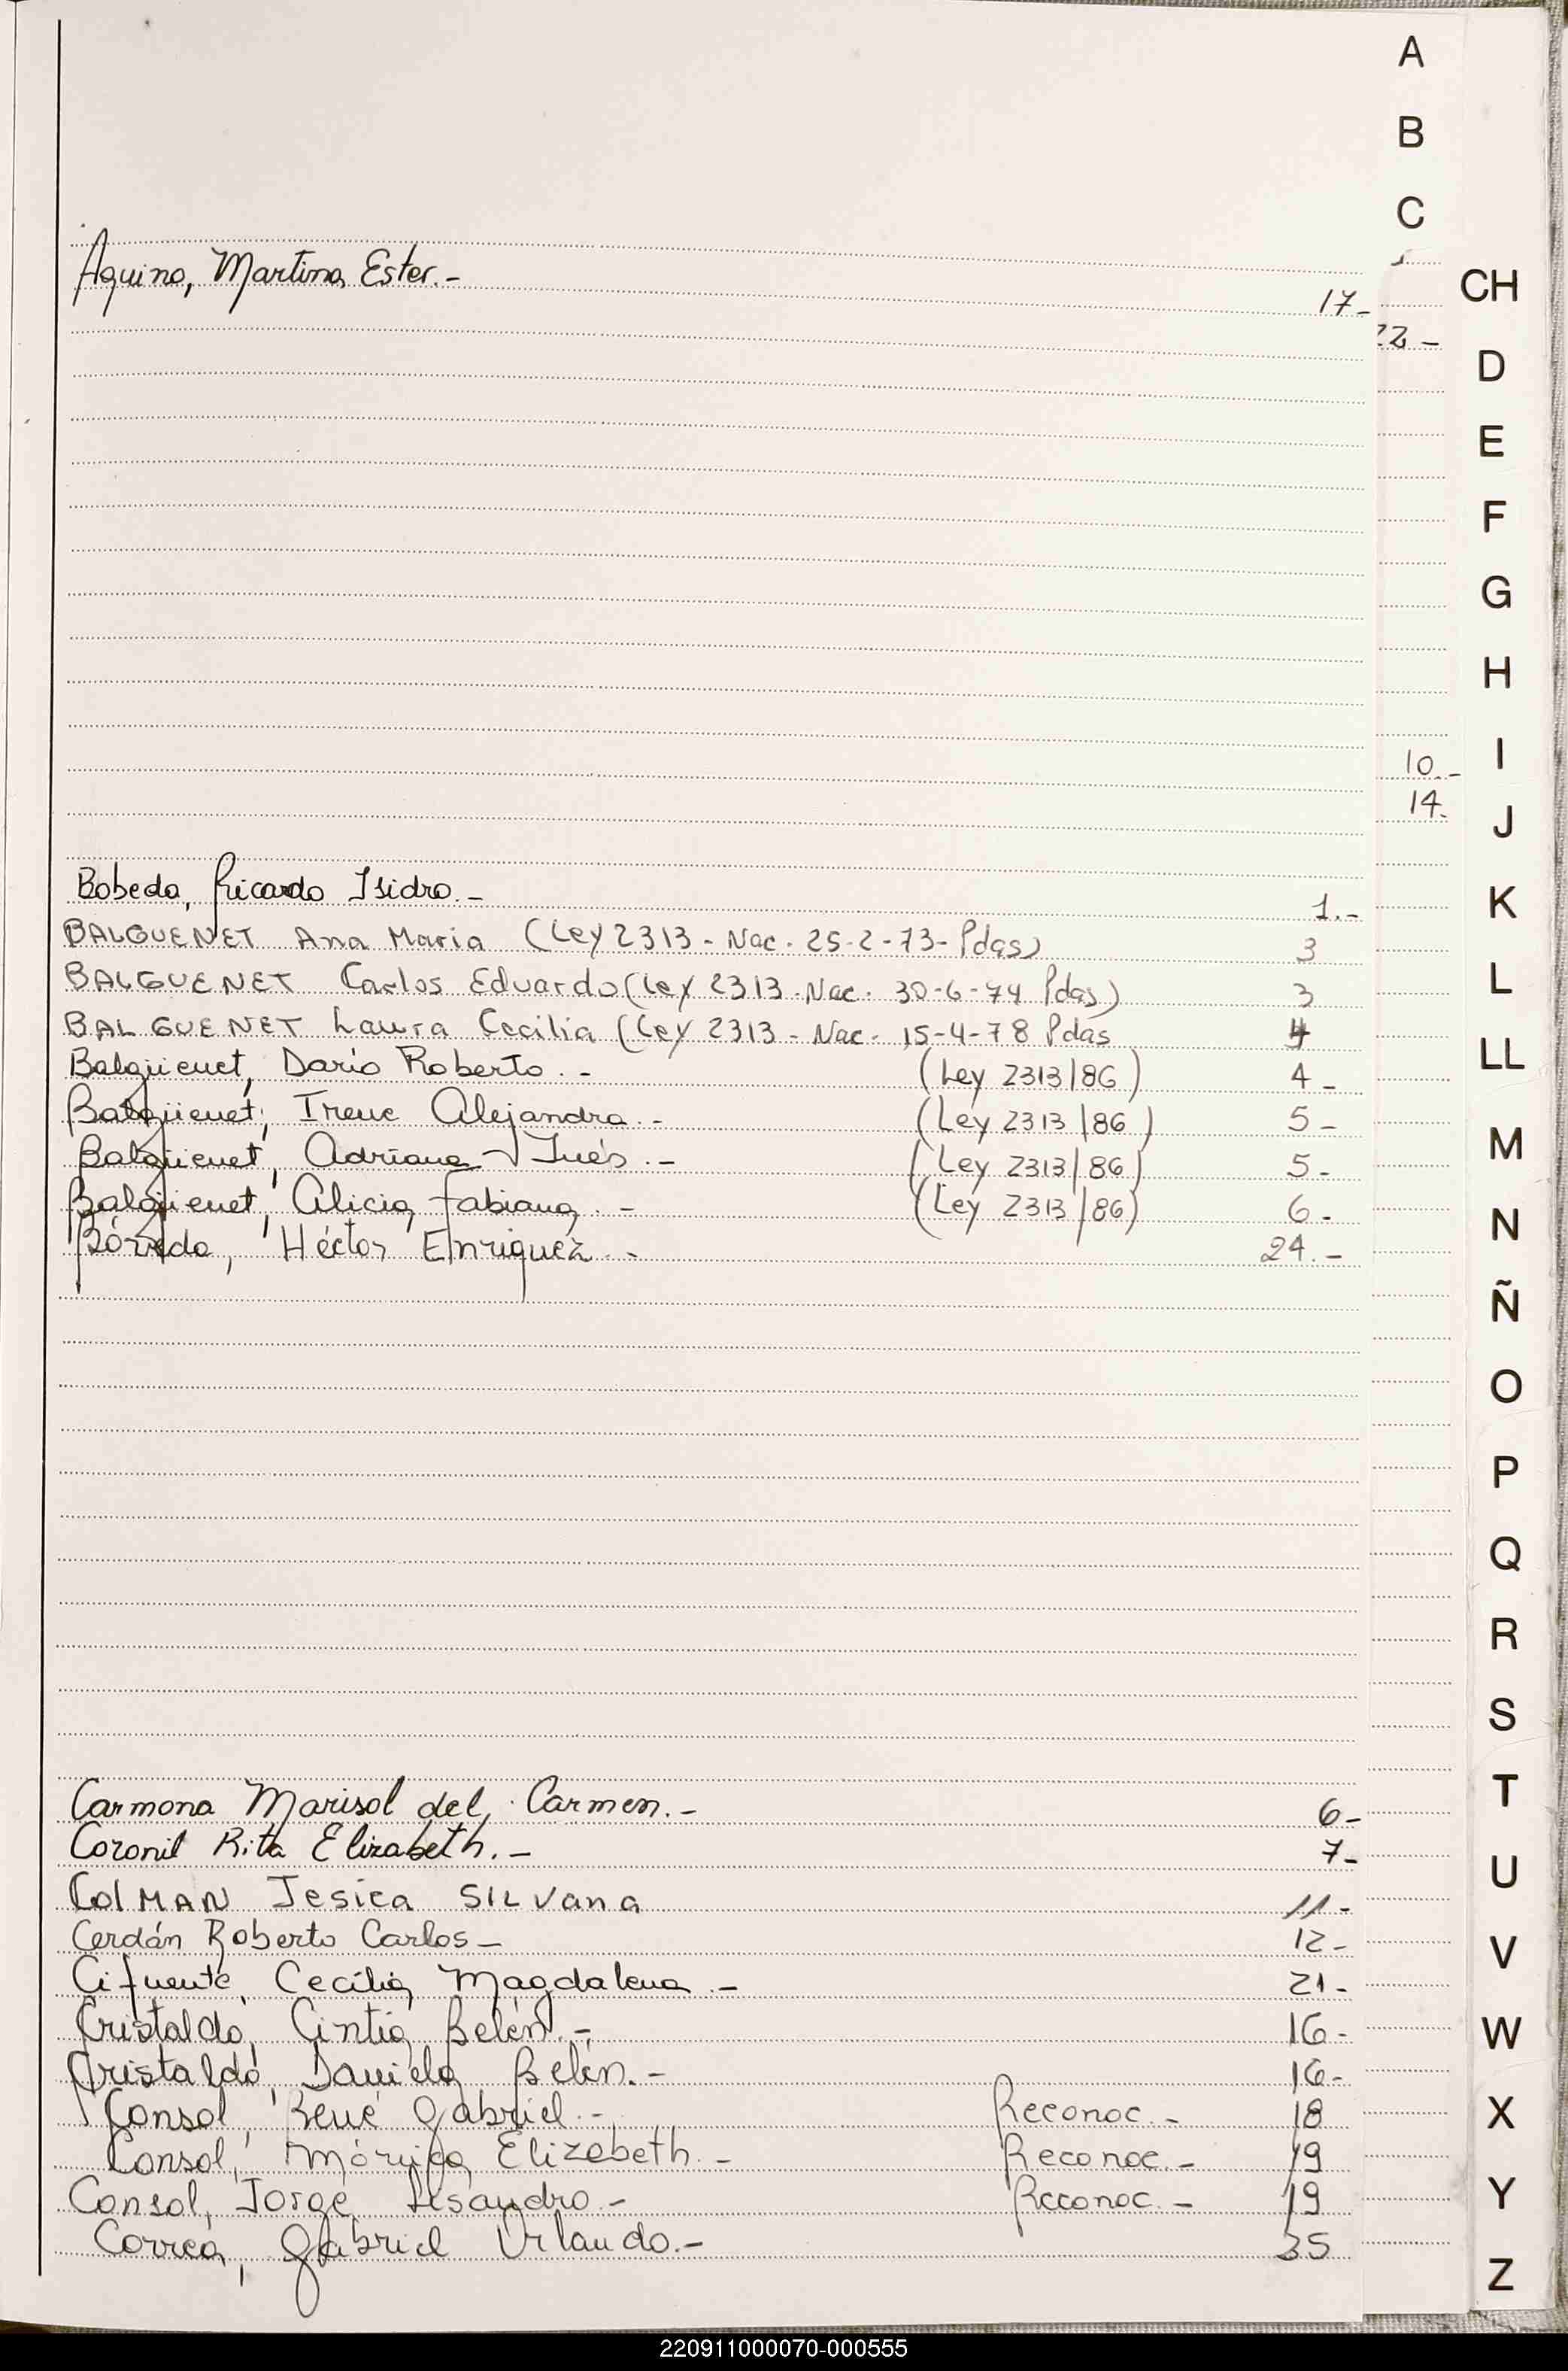 A
B
C
CH
D
E
F
G
H
I
J
K
L
LL
M
N
Ñ
O
P
Q
R
S
T
U
V
W
X
Y
Z
Aquino, Martina Ester.- 17-
22-
10.-
14.
Bobeda, Ricardo Isidro.- 1.-
BALGUENET Ana Maria (Ley 2313 - Nac. 25-2-73- Pdas) 3
BALGUENET Carlos Eduardo (Ley 2313. Nac. 30-6-74 Pdas) 3
BALGUENET Laura Cecilia (Ley 2313 - Nac. 15-4-78 Pdas 4
Balgüenet, Darío Roberto.- (Ley 2313/86) 4-
Balgüenet, Irene Alejandra.- (Ley 2313/86) 5-
Balgüenet, Adriana Inés.- (Ley 2313/86) 5-
Balgüenet, Alicia Fabiana.- (Ley 2313/86) 6-
Héctor Enriquez.- 24.-
Carmona Marisol del Carmen.- 6-
Coronil Rita Elizabeth.- 7-
COLMAN Jesica SILVana 11-
Cerdán Roberto Carlos- 12-
Cifuente, Cecilia Magdalena.- 21-
Cristaldo, Cintia Belén.- 16-
Cristaldo, Daniela Belén.- 16-
Consol, René Gabriel.- Reconoc.- 18
Consol, Mónica Elizabeth.- Reconoc.- 19
Consol, Jorge Lisandro.- Reconoc.- 19
Correa, Gabriel Orlando.- 35
220911000070-000555